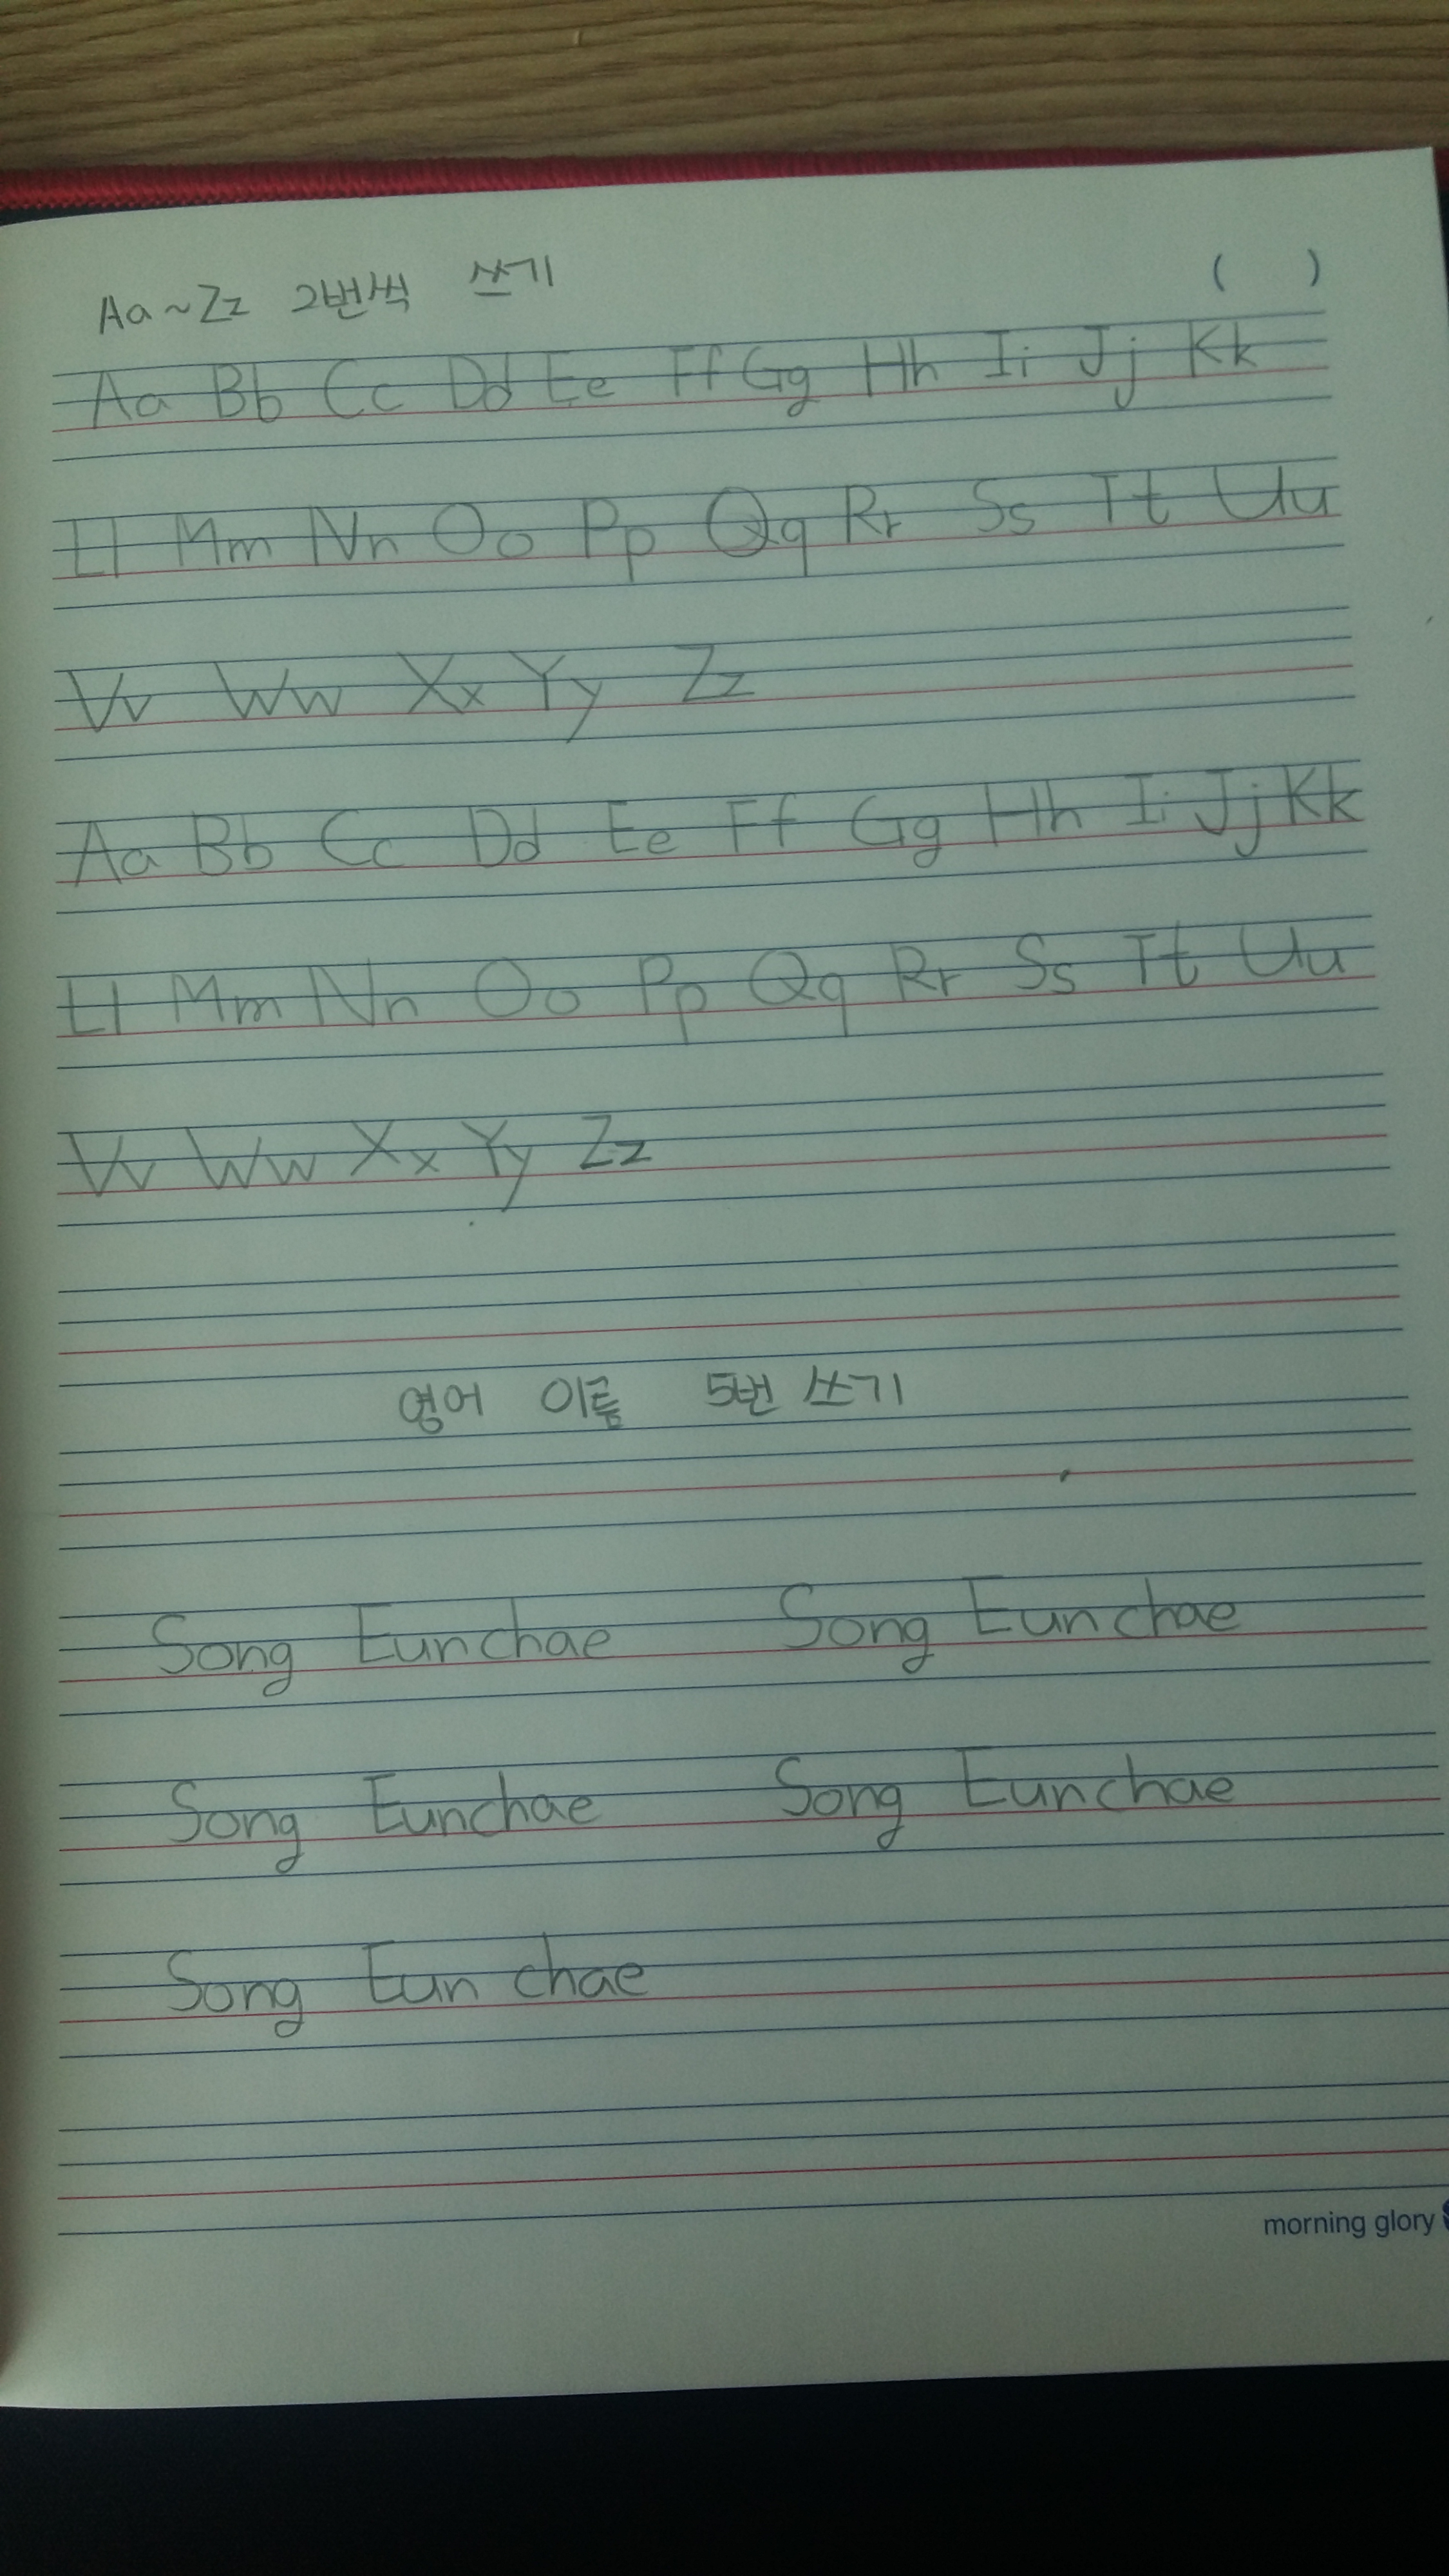 Aa~Zz 2번씩 쓰기 ( )
Aa Bb Cc Dd Ee Ff Gg Hh Ii Jj Kk
Ll Mm Nn Oo Pp Qq Rr Ss Tt Uu
Vv Ww Xx Yy Zz
Aa Bb Cc Dd Ee Ff Gg Hh Ii Jj Kk
Ll Mm Nn Oo Pp Qq Rr Ss Tt Uu
Vv Ww Xx Yy Zz
영어 이름 5번 쓰기
Song Eunchae Song Eunchae
Song Eunchae Song Eunchae
Song Eun chae
morning glory